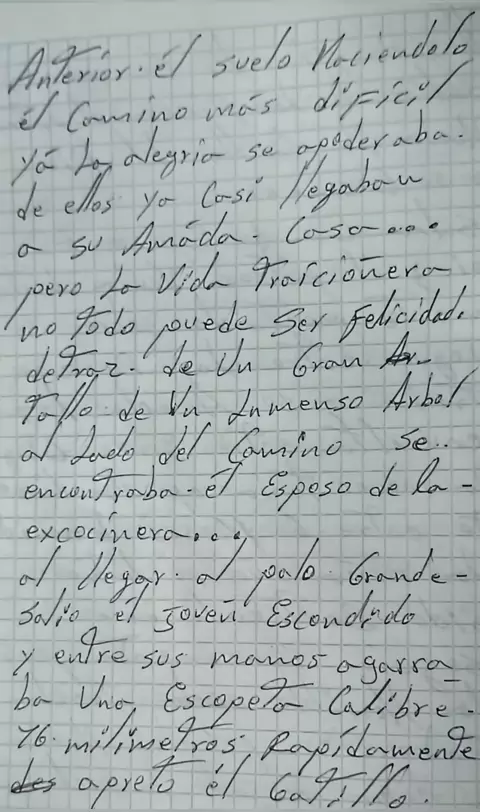 Anterior. él suelo Haciendolo
él Camino más difícil
yá La alegria se apoderaba.
de ellos ya Casi llegaban
a su Amáda. Casa...
pero La Vida Traicionera
no Todo puede Ser Felicidad.
detraz. de Un Gran
Tallo de Un Inmenso Arbol
al Lado del Camino se..
encontraba. él Esposo de la-
excocinera...
al llegar. al palo. Grande-
Salio él joven Escondido
y entre sus manos agarra_
ba Una Escopeta Calibre-
16. milimetros. Rapidamente
apreto él Gatillo.